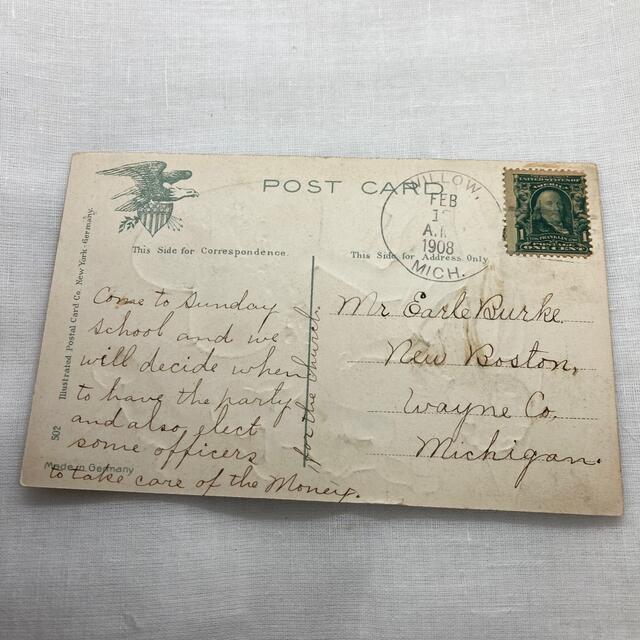 POST CARD
This Side for Correspondence.
This Side for Address Only
WILLOW,
FEB
A.M.
1908
MICH.
UNITED STATES OF
AMERICA
1
FRANKLIN
POSTAGE
ONE CENT
Illustrated Postal Card Co. New York-Germany.
502
Made in Germany
Come to Sunday
school and we
will decide when
to have the party
and also elect
some officers
to take care of the Money.
for the church.
Mr Earle Burke.
New Boston,
Wayne Co,
Michigan.